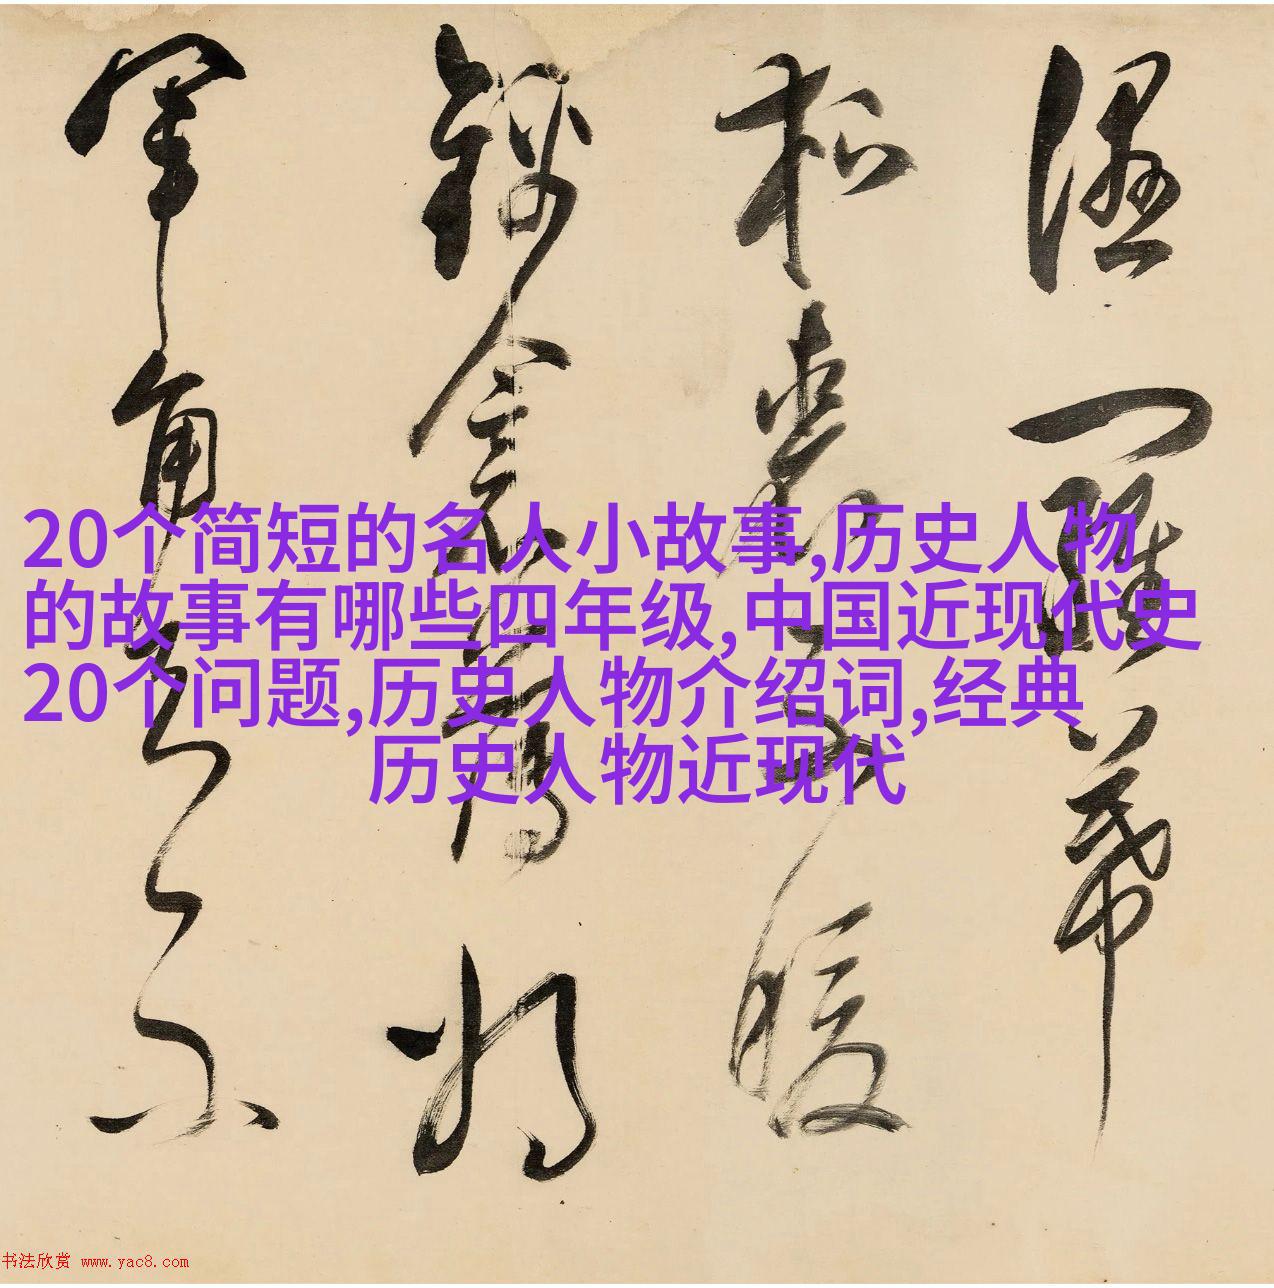 20个简短的名人小故事,历史人物
的故事有哪些四年级,中国近现代史
20个问题,历史人物介绍词,经典
历史人物近现代
濕羅幕
狐裘不暖
錦衾薄將
軍角弓不
书法欣赏 www.yac8.com